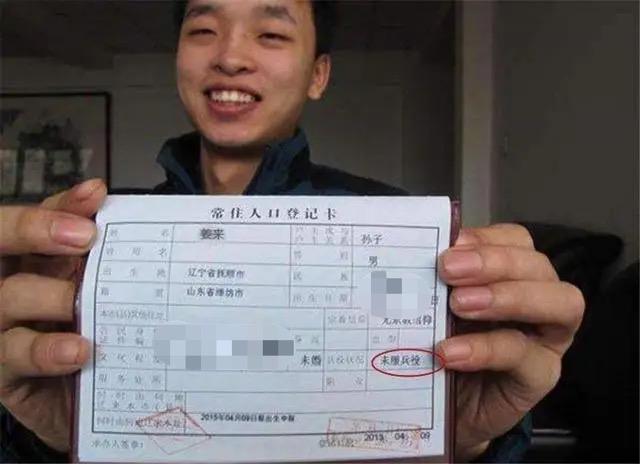 常住人口登记卡
姓名 姜来 户主或与户主关系 孙子
曾用名 性别 男
出生地 辽宁省抚顺市 民族
籍贯 山东省潍坊市 出生日期 日
本市(县)其他住址 宗教信仰 无宗教信仰
公民身 证件编 身高 血型
文化程度 未婚 兵役状况 未服兵役
服务处所 职业
何时由何地迁来本市(县)
何时由何地迁来本址 2015年04月09日报出生申报
承办人签章： 2015 04 09